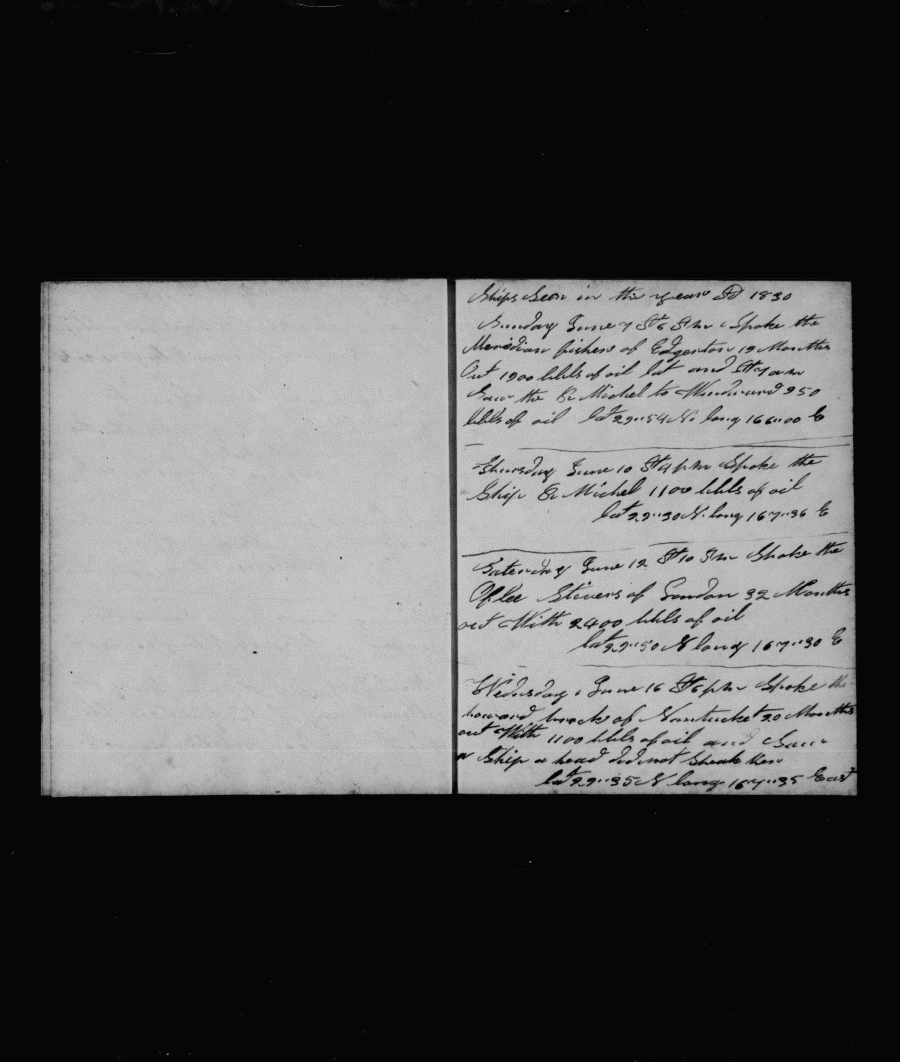 Ships Seen in the year AD 1830
Sunday June 7 At 6 Am Spoke the
Meridian fishers of Edgerton 19 Months
Out 1900 bbls of oil lat and At 7 am
Saw the St Michel to Windward 950
bbls of oil lat 29"54 N. long 166"00 E
Thursday June 10 At 4 pm Spoke the
Ship St Michel 1100 bbls of oil
lat 29"30 N. long 167"36 E
Saterday June 12 At 10 Am Spoke the
Stivers of London 32 Months
out With 2400 bbls of oil
lat 29"50 N long 167"30 E
Wedusday June 16 At 6 pm Spoke the
howard of Nantucket 20 Months
out With 1100 bbls of oil and Saw
a Ship a head did not Speak her
lat 29"35 N long 167"35 East